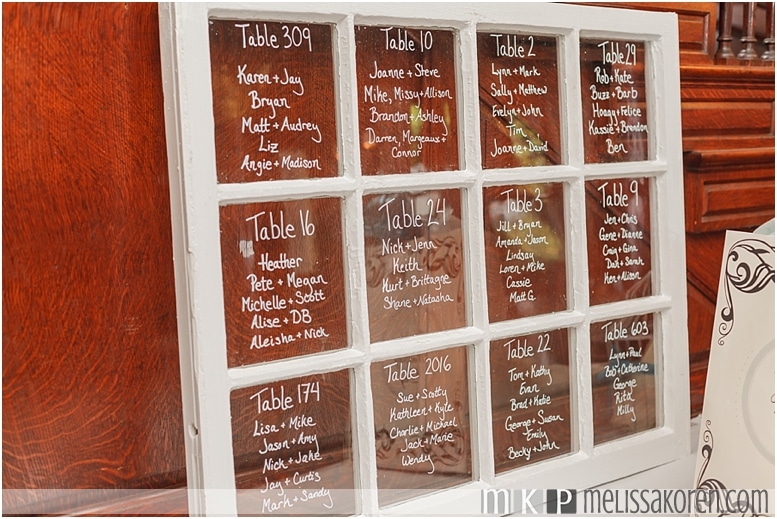 Table 309
Karen + Jay
Bryan
Matt + Audrey
Liz
Angie + Madison
Table 10
Joanne + Steve
Mike, Missy + Allison
Brandon + Ashley
Darren, Margeaux +
Connor
Table 2
Lynn + Mark
Sally + Matthew
Evelyn + John
Tim
Joanne + David
Table 29
Rob + Kate
Buzz + Barb
Hoagy + Felice
Kassie + Brendon
Ben
Table 16
Heather
Pete + Megan
Michelle + Scott
Alise + DB
Aleisha + Nick
Table 24
Nick + Jenn
Keith
Kurt + Brittagne
Shane + Natasha
Table 3
Jill + Bryan
Amanda + Jason
Lindsay
Loren + Mike
Cassie
Matt G.
Table 9
Jen + Chris
Gene + Dianne
Craig + Gina
Dak + Sarah
Ken + Alison
Table 174
Lisa + Mike
Jason + Amy
Nick + Jake
Jay + Curtis
Mark + Sandy
Table 2016
Sue + Scotty
Kathleen + Kyle
Charlie + Michael
Jack + Marie
Wendy
Table 22
Tom + Kathy
Evan
Brad + Katie
George + Susan
Emily
Becky + John
Table 603
Lynn + Paul
Bob + Catherine
George
Rita
Milly
mkp melissakoren.com